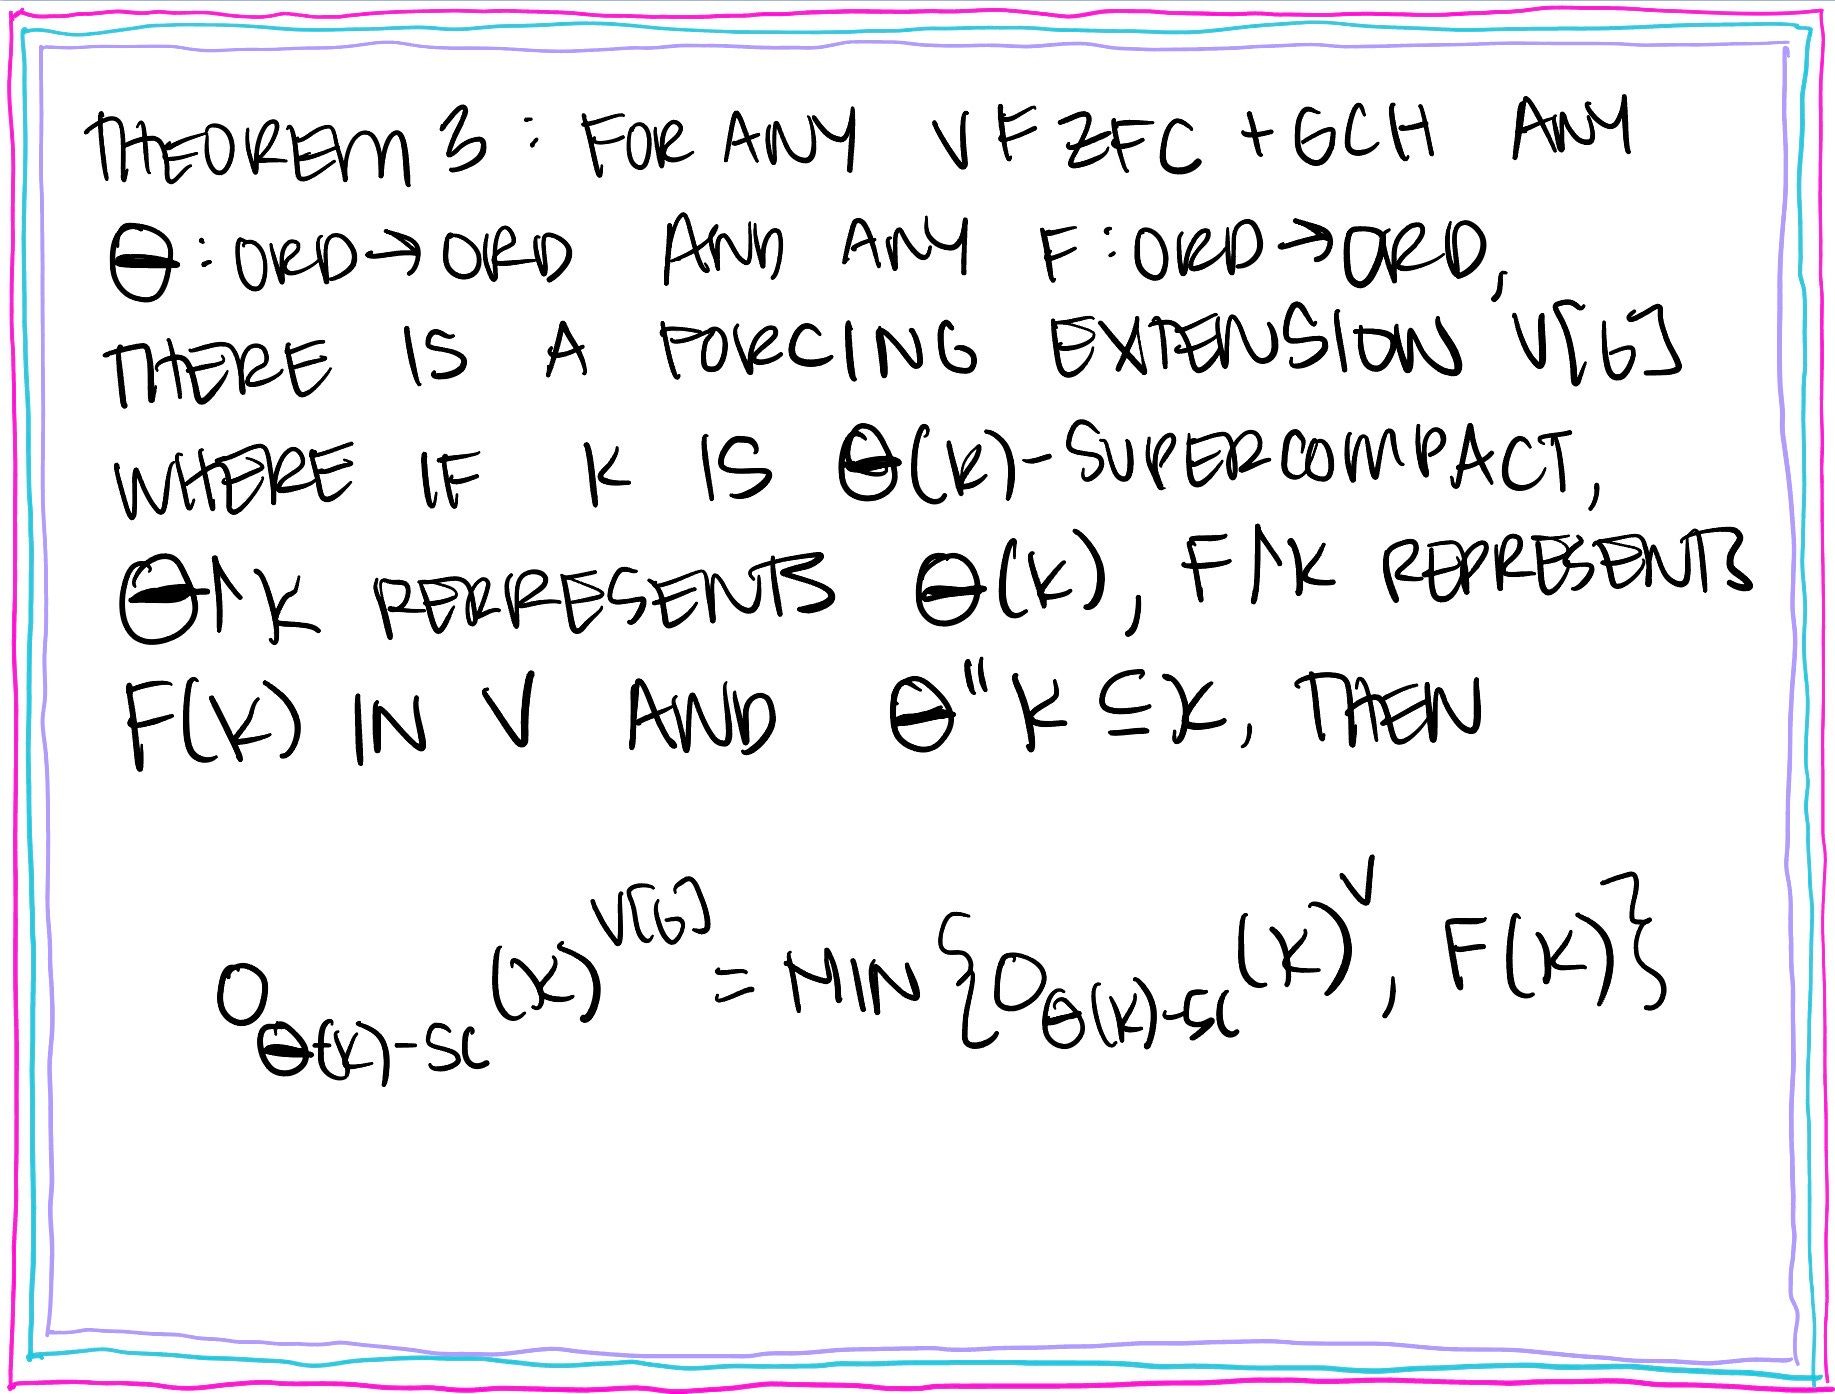 THEOREM 3: FOR ANY V ⊨ ZFC + GCH ANY
Θ: ORD → ORD AND ANY F: ORD → ORD,
THERE IS A FORCING EXTENSION V[G]
WHERE IF K IS Θ(K)-SUPERCOMPACT,
Θ↾K REPRESENTS Θ(K), F↾K REPRESENTS
F(K) IN V AND Θ"K ⊆ K, THEN
O_{Θ(K)-SC}(K)^{V[G]} = MIN{O_{Θ(K)-SC}(K)^V, F(K)}